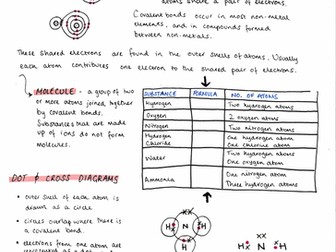 atoms share a pair of electrons.
Covalent bonds occur in most non-metal
elements, and in compounds formed
between non-metals.
These shared electrons are found in the outer shells of atoms. Usually
each atom contributes one electron to the shared pair of electrons.
MOLECULE - a group of two
or more atoms joined together
by covalent bonds.
Substances that are made
up of ions do not form
molecules.
SUBSTANCE FORMULA NO. OF ATOMS
Hydrogen Two hydrogen atoms
Oxygen 2 oxygen atoms
Nitrogen Two nitrogen atoms
Hydrogen Chloride One hydrogen atom One chlorine atom
Water Two hydrogen atoms One oxygen atom
Ammonia One nitrogen atom Three hydrogen atoms
DOT & CROSS DIAGRAMS
• outer shell of each atom is
drawn as a circle
• circles overlap where there is
a covalent bond.
• electrons from one atom are
xx
H N H
xx
H N H